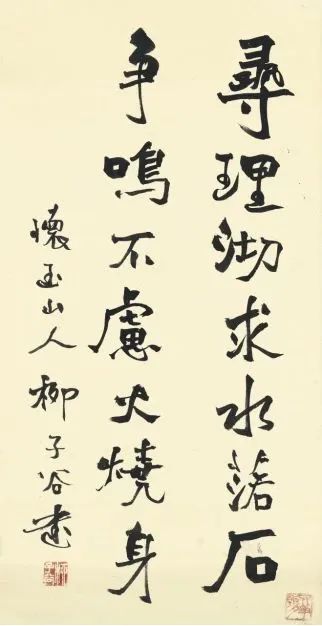 尋理沏求水落石
争鳴不慮火燒身
懷玉山人柳子谷書